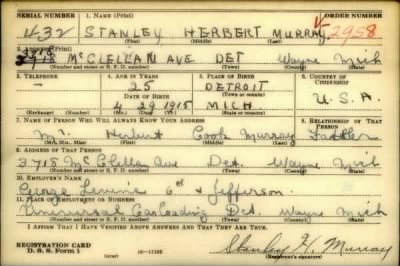 SERIAL NUMBER 1. NAME (Print) ORDER NUMBER
432 STANLEY HERBERT MURRAY 2958
(First) (Middle) (Last)
2. ADDRESS (Print)
McCLELLAN AVE DET Wayne Mich
(Number and street or R. F. D. number) (Town) (County) (State)
3. TELEPHONE 4. AGE IN YEARS 5. PLACE OF BIRTH 6. COUNTRY OF CITIZENSHIP
- 25 DETROIT
DATE OF BIRTH (Town or county)
4 29 1915 MICH U.S.A.
(Exchange) (Number) (Mo.) (Day) (Yr.) (State or country)
7. NAME OF PERSON WHO WILL ALWAYS KNOW YOUR ADDRESS 8. RELATIONSHIP OF THAT PERSON
Mr. Herbert Cook Murray Father
(Mr., Mrs., Miss) (First) (Middle) (Last)
9. ADDRESS OF THAT PERSON
3718 McClellan Ave Det. Wayne Mich
(Number and street or R. F. D. number) (Town) (County) (State)
10. EMPLOYER'S NAME
George 6th & Jefferson
11. PLACE OF EMPLOYMENT OR BUSINESS
Universal CarLoading Det. Wayne Mich
(Number and street or R. F. D. number) (Town) (County) (State)
I AFFIRM THAT I HAVE VERIFIED ABOVE ANSWERS AND THAT THEY ARE TRUE.
REGISTRATION CARD
D. S. S. Form 1 16—17105
Stanley H. Murray
(Registrant's signature)